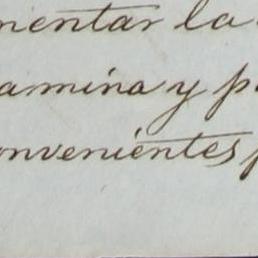 mentar la
amina y p
nvenientes p